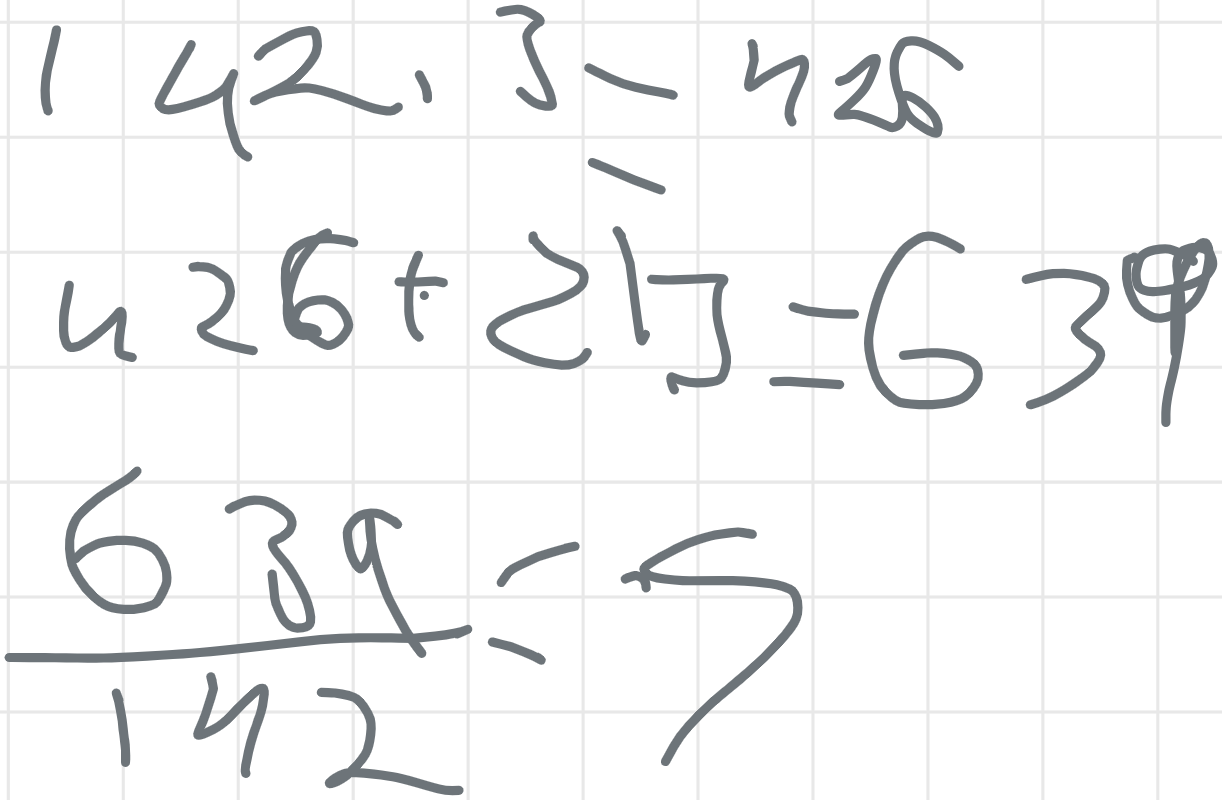 142.3=426
426+213=639
639/142=5